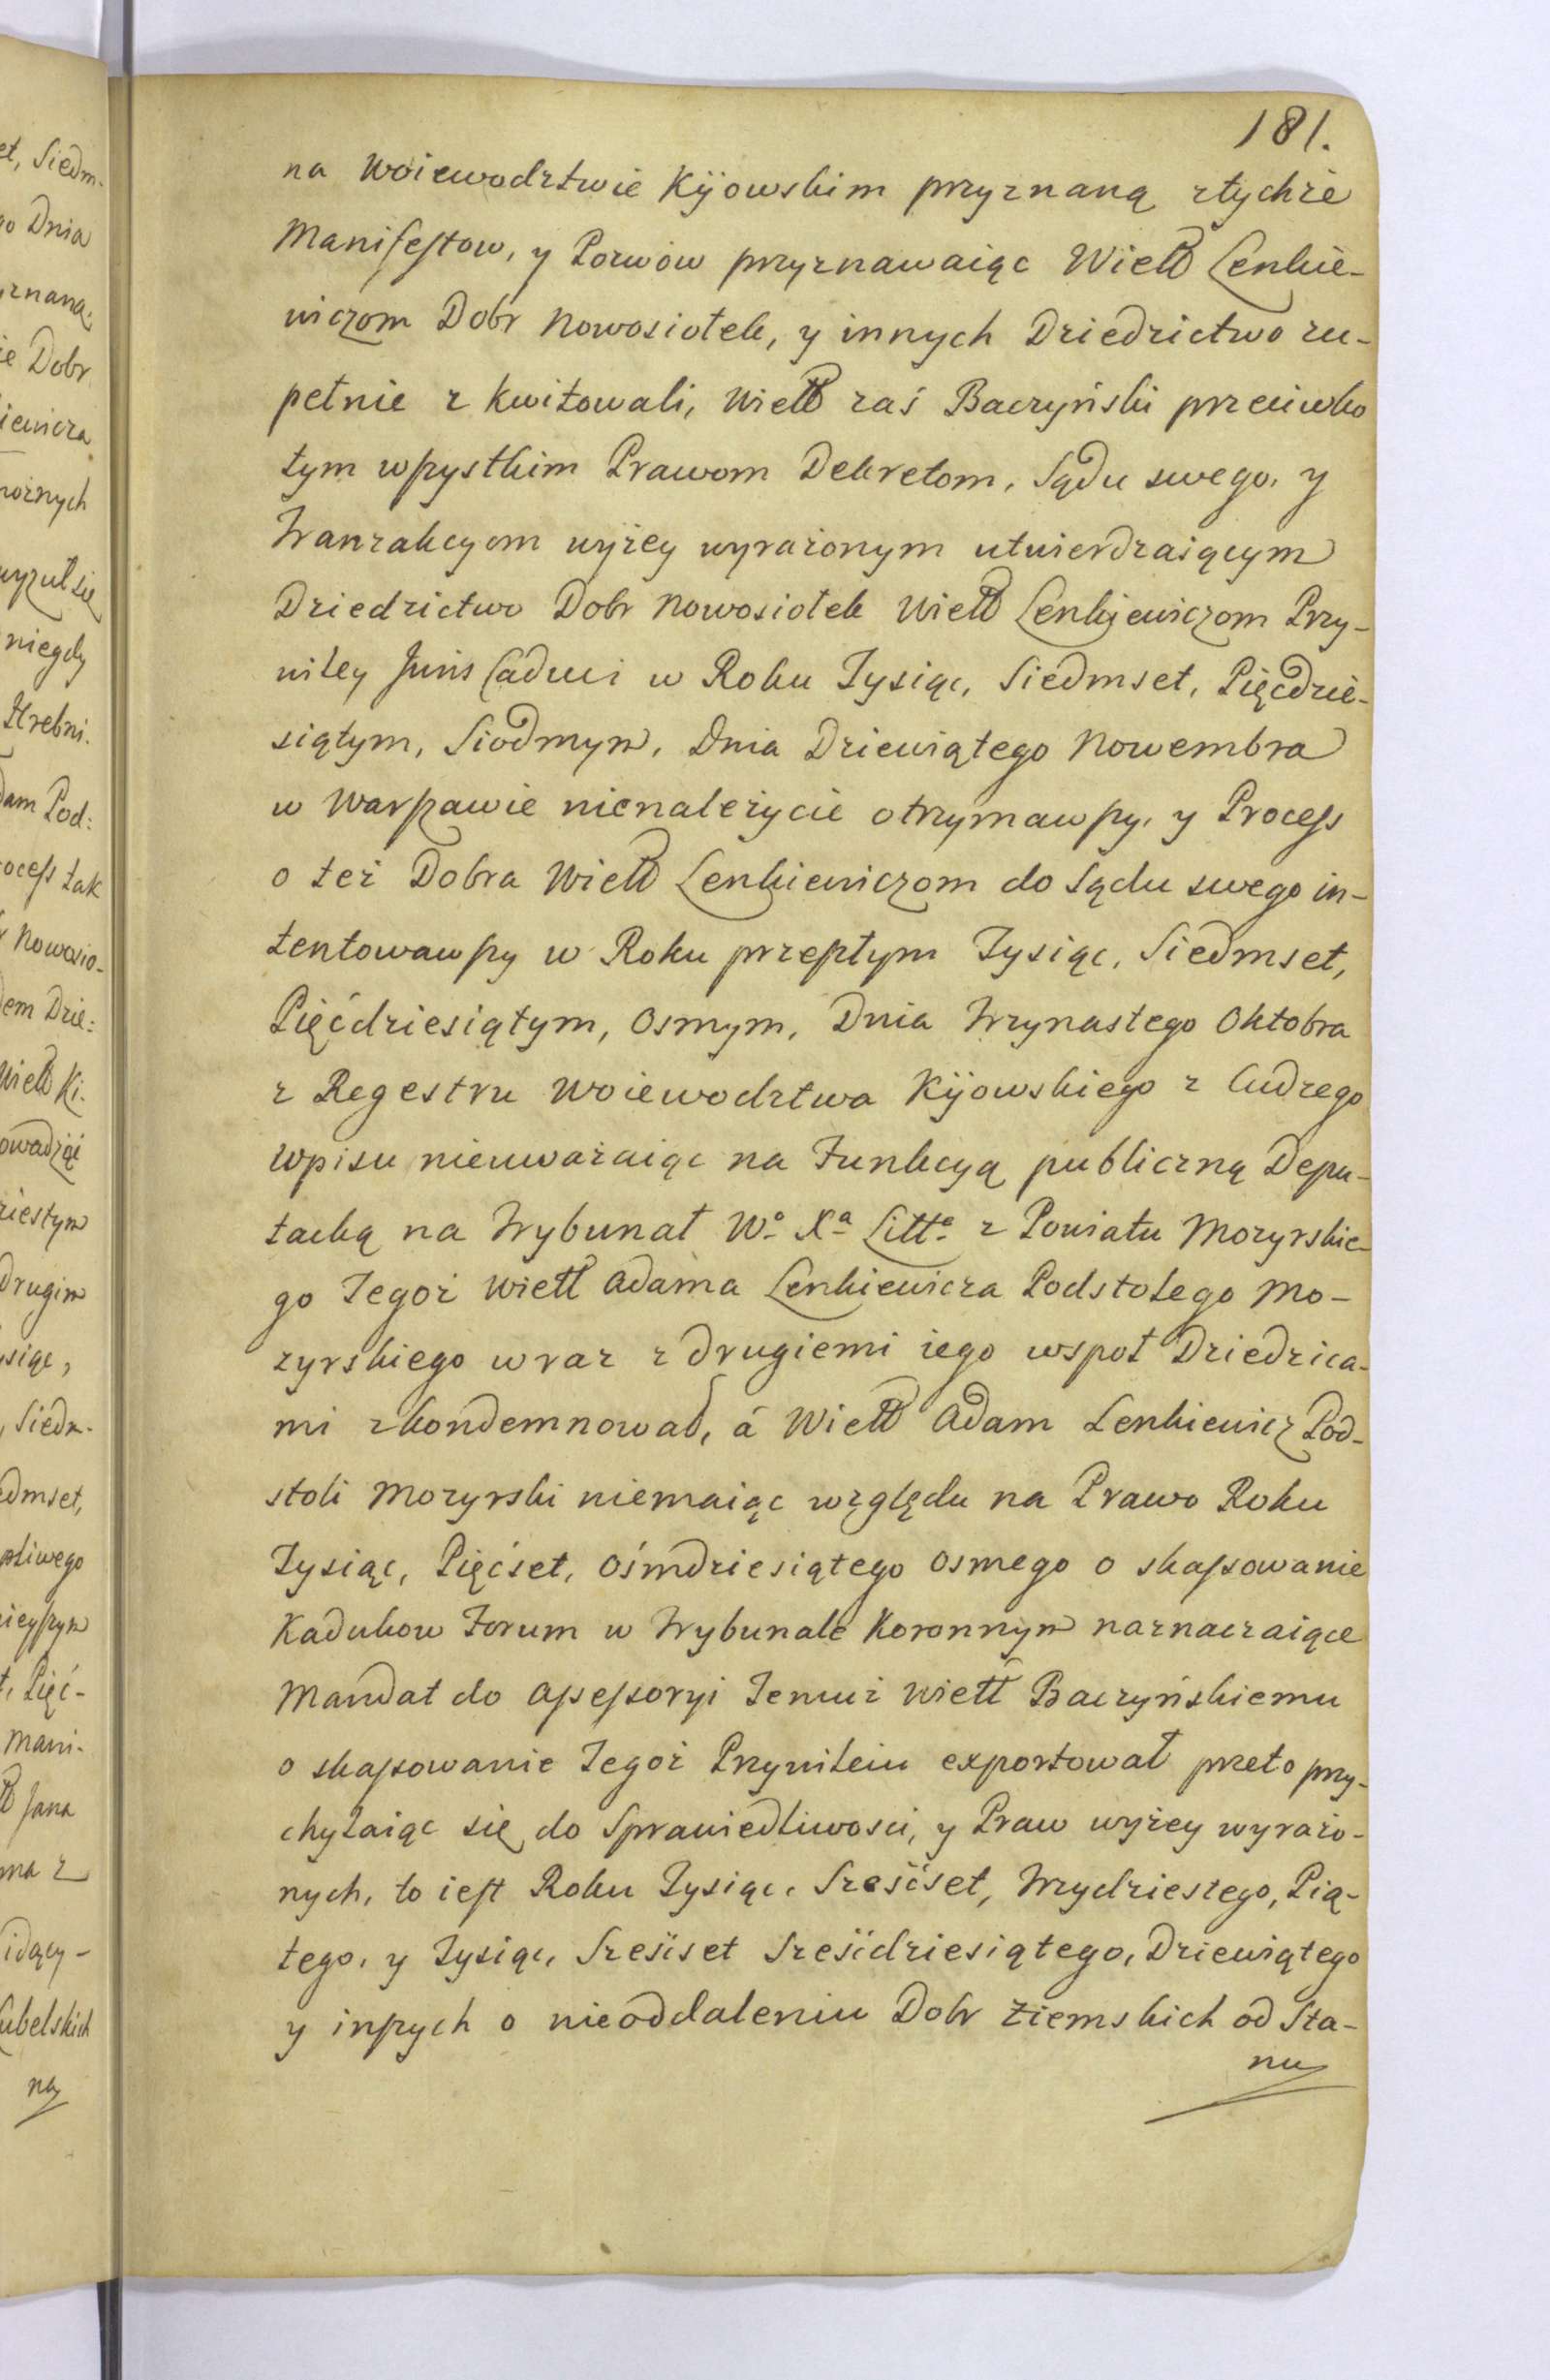 181.
na Woiewodztwie Kijowskim przyznaną ztychże
Manifestow, y Pozwow przyznawaiąc Wiełł Lenkie-
wiczom Dobr Nowosiołek, y innych Dziedzictwo zu-
pełnie z kwitowali, Wiełł zaś Baczyński przeciwko
tym wszystkim Prawom Dekretom, Sądu swego, y
Tranzakcyom wyżey wyrażonym utwierdzaiącym
Dziedzictwo Dobr Nowosiołek Wiełł Lenkiewiczom Przy-
wiley Juris Caduci w Roku Tysiąc, Siedmset, Pięcdzie-
siątym, Siodmym, Dnia Dziewiątego Nowembra
w Warszawie nienależycie otrzymawszy, y Process
o też Dobra Wiełł Lenkiewiczom do Sądu swego in-
tentowawszy w Roku przeszłym Tysiąc, Siedmset,
Pięćdziesiątym, Osmym, Dnia Trzynastego Oktobra
z Regestru Woiewodztwa Kijowskiego z Cudzego
Wpisu nieuważaiąc na Funkcyą publiczną Depu-
tacką na Trybunał Wo Xa Litte z Powiatu Mozyrskie-
go Tegoż Wiełł Adama Lenkiewicza Podstolego Mo-
zyrskiego wraz z drugiemi iego wspoł Dziedzica-
mi zkondemnował, á Wiełł Adam Lenkiewicz Pod-
stoli Mozyrski niemaiąc względu na Prawo Roku
Tysiąc, Pięćset, Ośmdziesiątego Osmego o skassowanie
Kadukow Forum w Trybunale Koronnym naznaczaiące
Mandat do Assessoryi Temuż Wiełł Baczyńskiemu
o skassowanie Tegoż Przywileiu exportował przeto przy-
chylaiąc się do Sprawiedliwosci, y Praw wyżey wyrażo-
nych, to iest Roku Tysiąc, Sześćset, Trzydziestego, Pią-
tego, y Tysiąc, Sześćset Sześćdziesiątego, Dziewiątego
y inszych o nieoddaleniu Dobr Ziemskich od Sta-
nu